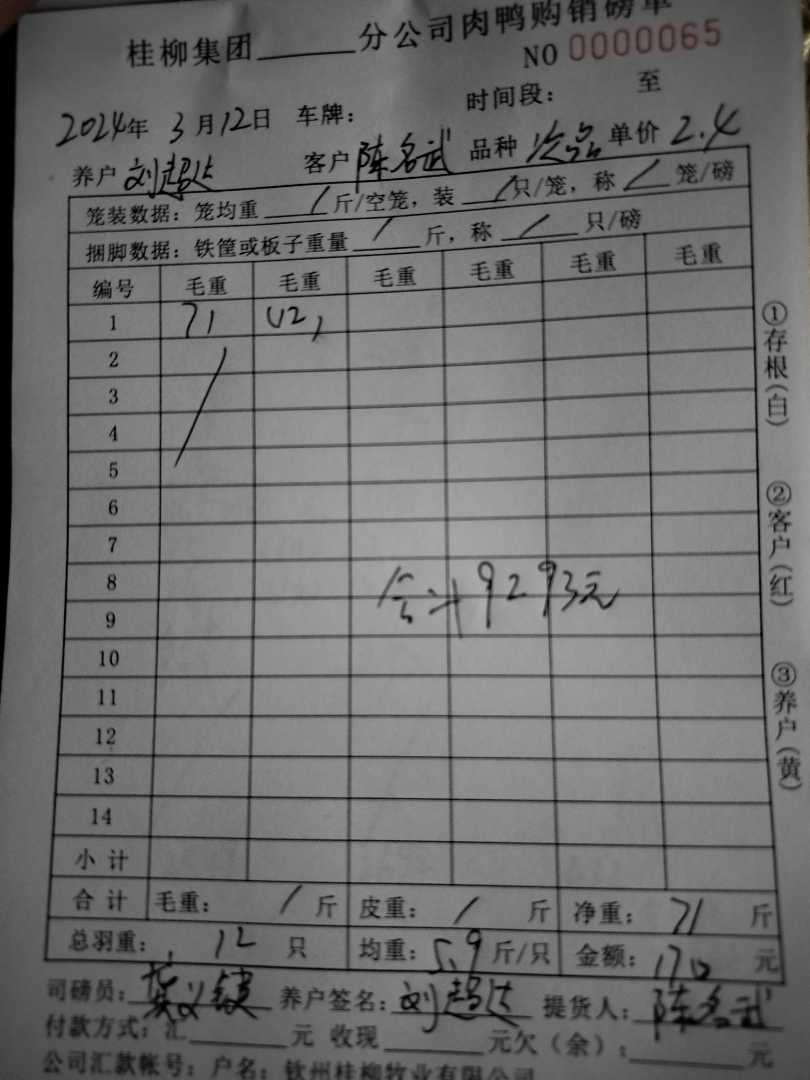 桂柳集团______分公司肉鸭购销磅单
NO 0000065
2024年 3月12日 车牌： 时间段： 至
养户 刘超达 客户 陈名武 品种 次品 单价 2.4
笼装数据：笼均重 / 斤/空笼，装 / 只/笼，称 / 笼/磅
捆脚数据：铁筐或板子重量 / 斤，称 / 只/磅
编号 毛重 毛重 毛重 毛重 毛重 毛重
1 71
2
3
4
5
6
7
8 合计9293元
9
10
11
12
13
14
小计
合计 毛重： / 斤 皮重： / 斤 净重： 71 斤
总羽重： 12 只 均重： 5.9 斤/只 金额： 170 元
司磅员： 养户签名：刘超达 提货人：陈名武
付款方式：汇______元 收现______元欠（余）：______元
公司汇款帐号：户名：钦州桂柳牧业有限公司
①存根（白）
②客户（红）
③养户（黄）